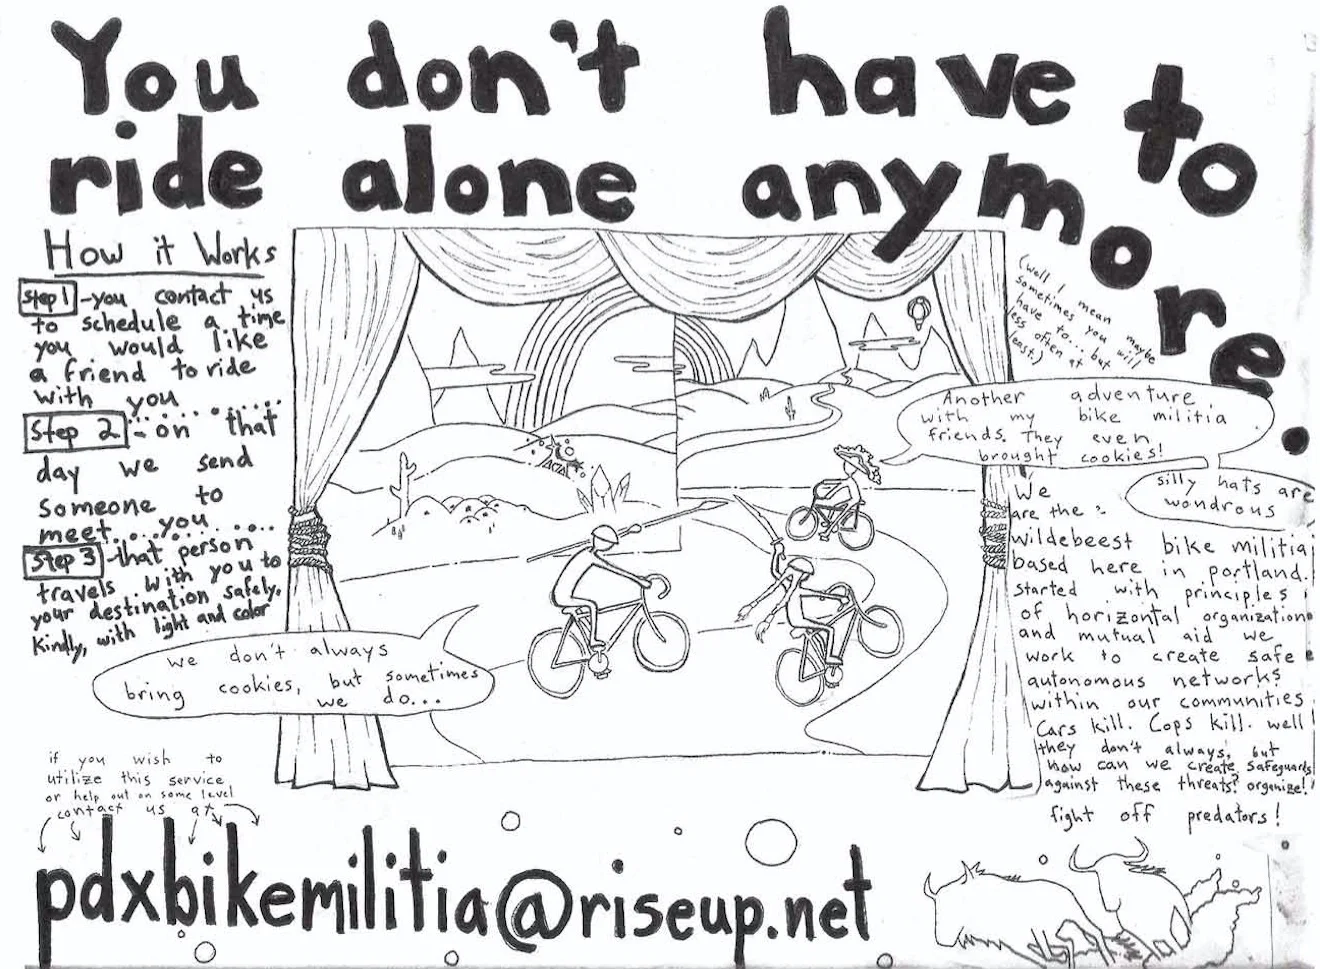 You don't have to
ride alone anymore.
(well I mean maybe
sometimes you will
have to... but
less often at
least.)
How it Works
Step 1 - you contact us
to schedule a time
you would like
a friend to ride
with you..........
Step 2 - on that
day we send
someone to
meet...you.......
Step 3 - that person
travels with you to
your destination safely,
kindly, with light and color
we don't always
bring cookies, but sometimes
we do...
Another adventure
with my bike militia
friends. They even
brought cookies!
silly hats are
wondrous
We
are the :
wildebeest bike militia
based here in portland.
started with principles
of horizontal organization
and mutual aid we
work to create safe
autonomous networks
within our communities
Cars kill. Cops kill. well
they don't always, but
how can we create safeguards
against these threats? organize!
fight off predators!
if you wish to
utilize this service
or help out on some level
contact us at
pdxbikemilitia@riseup.net